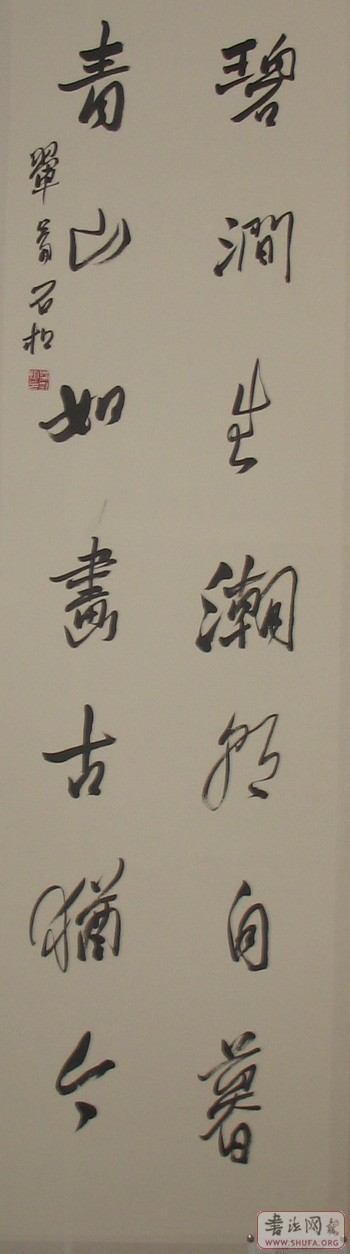 碧澗生潮朝自暮
青山如畫古猶今
書法网
WWW.SHUFA.ORG